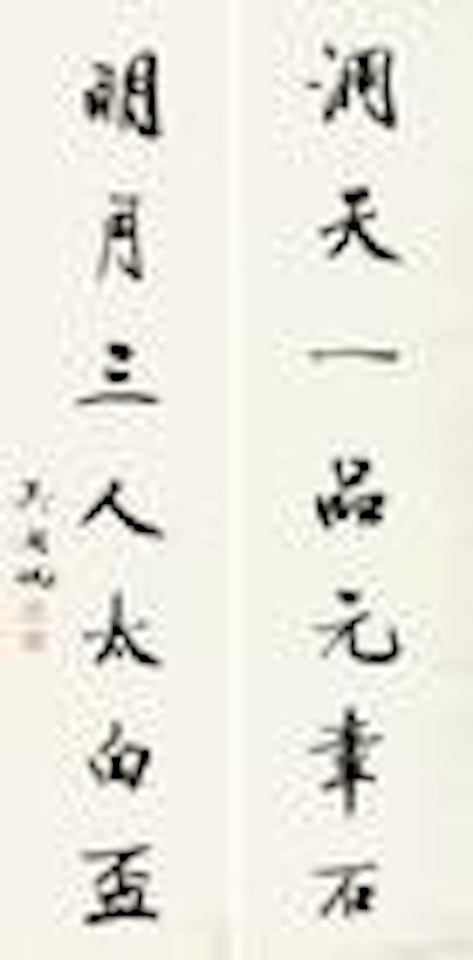 洞天一品元章石
明月三人太白盃